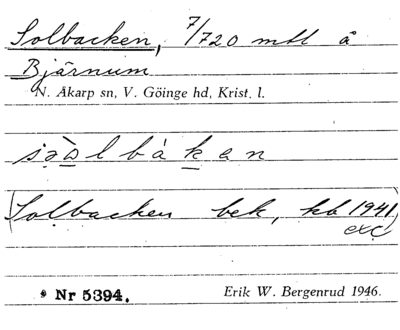 Solbacken, 7/720 mtl å
Bjärnum
N. Åkarp sn, V. Göinge hd, Krist. l.
sɔ̀lbákan
(Solbacken bek, kb 1941)
exc
Nr 5394. Erik W. Bergenrud 1946.